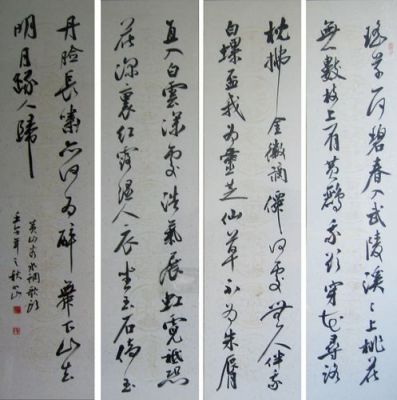 瑶草一何碧春入武陵溪々上桃花
無數枝上有黄鸝我欲穿花尋路
枕拂金徽謫仙何處無人伴我
白螺盃我为靈芝仙草不为朱唇
直入白雲深處浩氣展虹霓祇恐
花深裏紅露濕人衣坐玉石倚玉
丹臉長嘯亦何为醉舞下山去
明月逐人歸
黄山谷水調歌頭